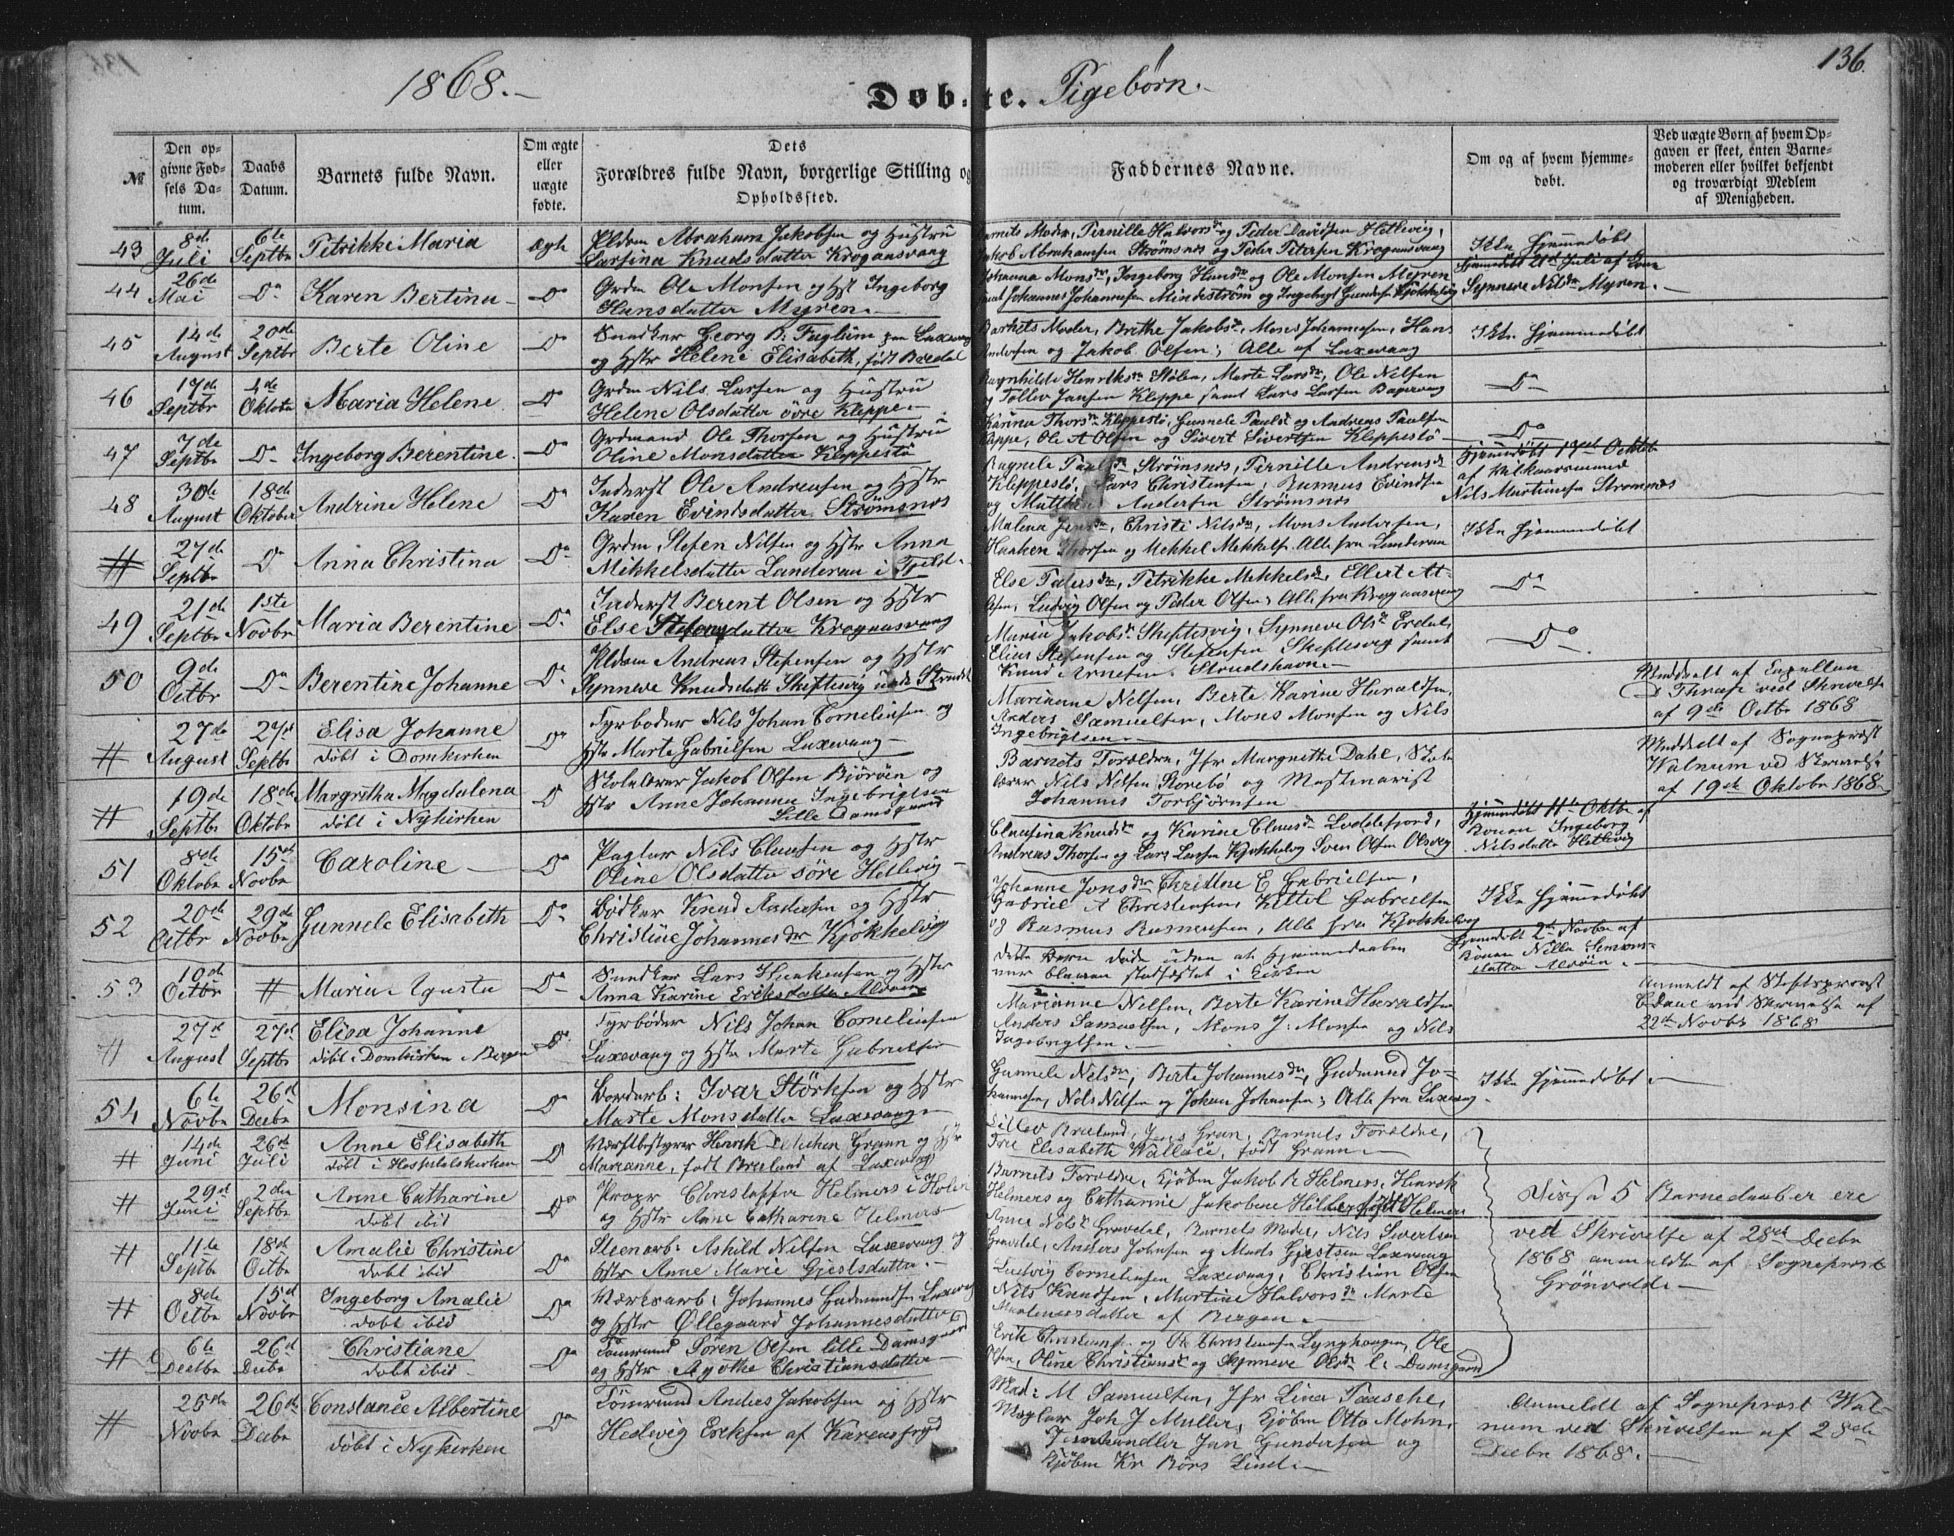 1868.
Døbte. Pigebørn.
136.
№
Den opgivne Fødsels Datum.
Daabs Datum.
Barnets fulde Navn.
Om ægte eller uægte fødte.
Dets Forældres fulde Navn, borgerlige Stilling og Opholdssted.
Faddernes Navne.
Om og af hvem hjemmedøbt.
Ved uægte Børn af hvem Opgaven er skeet, enten Barnemoderen eller hvilket bekjendt og troværdigt Medlem af Menigheden.
43 8de Juli 6te Septbr Petrikke Maria ægte
Pldsm Abraham Jakobsen og Hustru
Larsina Knudsdatter Krogaasvaag
Barnets Moder, Pernille Halvorsdr og Peder Davidsen Hetlevig,
Jakob Abrahamsen Strømsnes og Peder Petersen Krogaasvaag
Ikke Hjemmedøbt
44 26de Mai Do Karen Bertina Do
Grdm Ole Monsen og Hst Ingeborg
Hansdatter Myren
Johanna Monsdr, Ingeborg Hansdr og Ole Monsen Myren
samt Johannes Johannesen Mindestrøm og Ingebrigt Gundersen Kjøkkelvig
Hjemmedøbt 21de Juli af Kone
Synneve Nilsdr Myren.
45 14de August 20de Septbr Berte Oline Do
Snedker Georg B. Fuglum paa Laxevaag
og Hstr Helene Elisabeth, født Bredal
Barnets Moder, Brithe Jakobsdr, Moses Johannesen, Hans
Andersen og Jakob Olsen; Alle af Laxevaag
Ikke Hjemmedøbt
46 17de Septbr 4de Oktobr Maria Helene Do
Grdm Nils Larsen og Hustru
Helene Olsdatter øvre Kleppe
Ragnhilde Henriksdr Stølen, Marte Larsdr, Ole Nilsen
og Tollev Jansen Kleppe samt Lars Larsen Bagervaag
Do
47 7de Septbr Do Ingeborg Berentine. Do
Grdmand Ole Thorsen og Hustru
Oline Monsdatter Kleppestø
Karina Thorsdr Kleppestø, Gunnele Paulsdr og Andreas Paulsen
Kleppe, Ole A Olsen og Sivert Sivertsen Kleppestø
Do
48 30de August 18de Oktober Andrine Helene Do
Inderst Ole Andreasen og Hstr
Karen Evindsdatter Strømsnes
Ragnele Paulsdr Strømsnes, Pernille Andreasdr
Kleppestø, Lars Christensen, Rasmus Evindsen
og Andersen Strømsnes
Hjemmedøbt 17de Oktbr
af
Nils Martinusen Strømsnæs
# 27de Septbr Do Anna Christina Do
Grdm Stefen Nilsen og Hstr Anna
Mikkelsdatter Landeraa i Fjeld
Malena Jensdr, Christi Nilsdr, Mons Andersen,
Haaken Thorsen og Mekkel Mekkels. Alle fra Landeraa
Ikke Hjemmedøbt
49 21de Septbr 1ste Novbr Maria Berentine Do
Inderst Berent Olsen og Hstr
Else Krogaasvaag
Else Pedersdr, Petrikke Mekkelsdr, Ellert At-
lesen, Ludvig Olsen og Peder Olsen, Alle fra Krogaasvaag
Do
50 9de Octbr Do Berentine Johanne Do
Pldsm Andreas Stefensen og Hstr
Synneve Knudsdatter Skiftesvig
Maria Jakobsdr Skiftesvig, Synneve Olsdr Erdal,
Elias Stefensen og Stefensen Skiftesvig samt
Knud Arnesen Strudshavn
Do
# 27de August 27de Septbr Elisa Johanne døbt i Domkirken Do
Fyrbøder Nils Johan Corneliusen og
Hstr Marte Gabrielsen Laxevaag
Marianne Nilsen, Berte Karine Haraldsen,
Anders Samuelsen, Moses Monsen og Nils
Ingebrigtsen
Meddelt af Capellan
D Thrap ved Skrivelse
af 9de Octbr 1868
# 19de Septbr 18de Oktobr Margretha Magdalena døbt i Nykirken D
Skolelærer Jakob Olsen Bjørøen og
Hstr Anne Johanna Ingebrigtsen
Lille Damsgaard
Barnets Forældre, Jfr Margrethe Dahl, Skole-
lærer Nils Nilsen Storebø og
Johannes Torbjørnsen
Meddelt af Sognepræst
Walnum ved Skrivelse
af 19de Oktobr 1868
51 8de Oktobr 15de Novbr Caroline Do
Pagter Nils Clausen og Hstr
Oline Olsdatter søre Hetlevig
Clausina Knudsdr og Karine Clausdr Loddefjord,
Andreas Thorsen og Lars Larsen Kjøkkelvig Sven Olsen Olsvig
Hjemmedøbt 11te Oktbr af
Konen Ingeborg
Nilsdatter Hetlevig
52 20de Octbr 29de Novbr Gunnele Elisabeth Do
Bødker Knud Andersen og Hstr
Christine Johannesdr Kjøkkelvig
Johanne Jonsdr Christine E Gabrielsen,
Gabriel A Christensen, Kittel Gabrielsen
og Rasmus Rasmussen, Alle fra Kjøkkelvig
Ikke Hjemmedøbt
53 10de Octbr # Maria Agusta Do
Snedker Lars Haakensen og Hstr
Anna Karine Eriksdatter Alvøen
Dette Barn døde uden at Hjemmedaaben
var bleven stadfæstet i Kirken
Hjemmedøbt 2de Novbr af
Konen Nille Simons-
datter Alvøen
# 27de August 27de Septbr Elisa Johanne døbt i Domkirken i Bergen Do
Fyrbøder Nils Johan Corneliusen
Laxevaag og Hstr Marte Gabrielsen
Marianne Nilsen, Berte Karine Haraldsen
Anders Samuelsen, Mons J. Monsen og Nils
Ingebrigtsen
Anmeldt af Stiftsprovst
ved Skrivelse af
22de Novbr 1868
54 6te Novbr 26de Decbr Monsina Do
Bordarb: Ivar Størksen og Hstr
Marte Monsdatter Laxevaag
Gunnele Nilsdr, Berte Johannesdr, Gudmund Jo-
hannesen, Nils Nilsen og Johan Johansen; Alle fra Laxevaag.
Ikke Hjemmedøbt
# 14de Juni 26de Juli Anne Elisabeth døbt i Hospitalskirken D
Værftbestyrer Henrik Grann og Hstr
Marianne, født Breeland af Laxevaag
Ditlev Breeland, Jens Gran, Barnets Forældre,
Fru Elisabeth Wallace, født Grann
# 29de Juni 2den Septbr Anne Catharine døbt ibid Do
Propr Christoffer Helmers i Holen
og Hstr Anne Catharine Helmers
Barnets Forældre, Kjøbm Jakob K Helmers, Henrik
Helmers og Cathrine Jakobine født Helmers
Disse 5 Barnedaaber ere
ved Skrivelse af 28de Decbr
1868 anmeldte af Sogneprest
Grönvold
# 11te Septbr 18de Octbr Amalie Christine døbt ibid Do
Steenarb: Askild Nilsen Laxevaag og
Hstr Anne Marie Gjestsdatter
Anne Nilsdr Gravdal, Barnets Moder, Nils Sivertsen
Gravdal, Anders Johnsen og Mads Gjestsen Laxevaag
# 8de Octbr 15de Novbr Ingeborg Amalie døbt ibid Do
Værksarb: Johannes Gudmundsen Laxevaag
og Hstr Øllegaard Johannesdatter
Ludvig Corneliusen Laxevaag, Christian Olsen
Nils Knudsen, Martine Halvorsdr Marte
Mortensdatter af Bergen
# 6te Decbr 26de Decbr Christiane døbt ibid Do
Tømrmd Søren Olsen lille Damsgaard
og Hstr Agothe Christiansdatter
Erik Christensen og Ole Christensen Lynghaugen, Ole
Olsen, Oline Christiansdr og Synneve Olsdr l: Damsgaard
# 25de Novbr 26de Decbr Constance Albertine døbt i Nykirken Do
Tømrmd Anders Jakobsen og Hstr
Hedevig Eriksen af Karensfryd
Mad: M Samuelsen, Jfr Lina Paasche,
Mægler Joh J Muller, Kjøbm Otto Mohn,
Jan Gundersen og
Kjøbm Kr Børs Lind
Anmeldt af Sogneprest Wal-
num ved Skrivelsen af 28de
Decbr 1868.